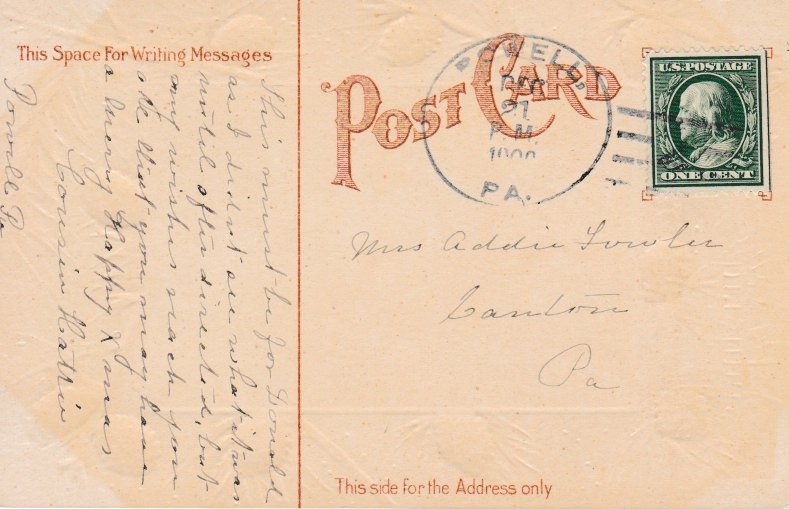 This Space For Writing Messages
POST CARD
POWELL,
DEC
21
P.M.
PA.
U.S. POSTAGE
ONE CENT
This must be for Donald
as I did not see what it was
until after directed, but
my wishes reach you
all that you may have
a Merry Happy Xmas
Cousin Hattie
Powell Pa
Mrs Addie Fowler
Canton
Pa
This side for the Address only